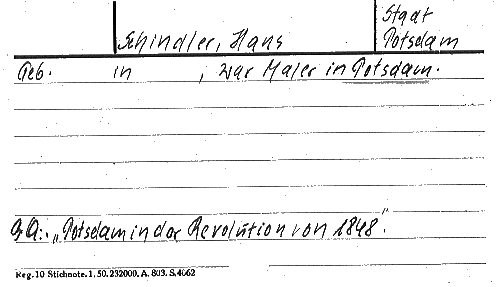 Stadt
Schindler, Hans Potsdam
Geb. in , war Maler in Potsdam.
Z.A.: „Potsdam in der Revolution von 1848".
Reg. 10 Stichnote. 1, 50. 232000. A. 803. S. 4662